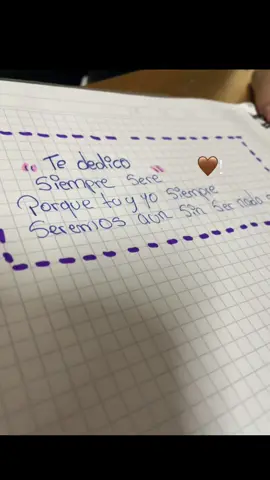 " Te dedico "
Siempre Sere
Porque tu y yo Siempre
Seremos aun Sin Ser nada